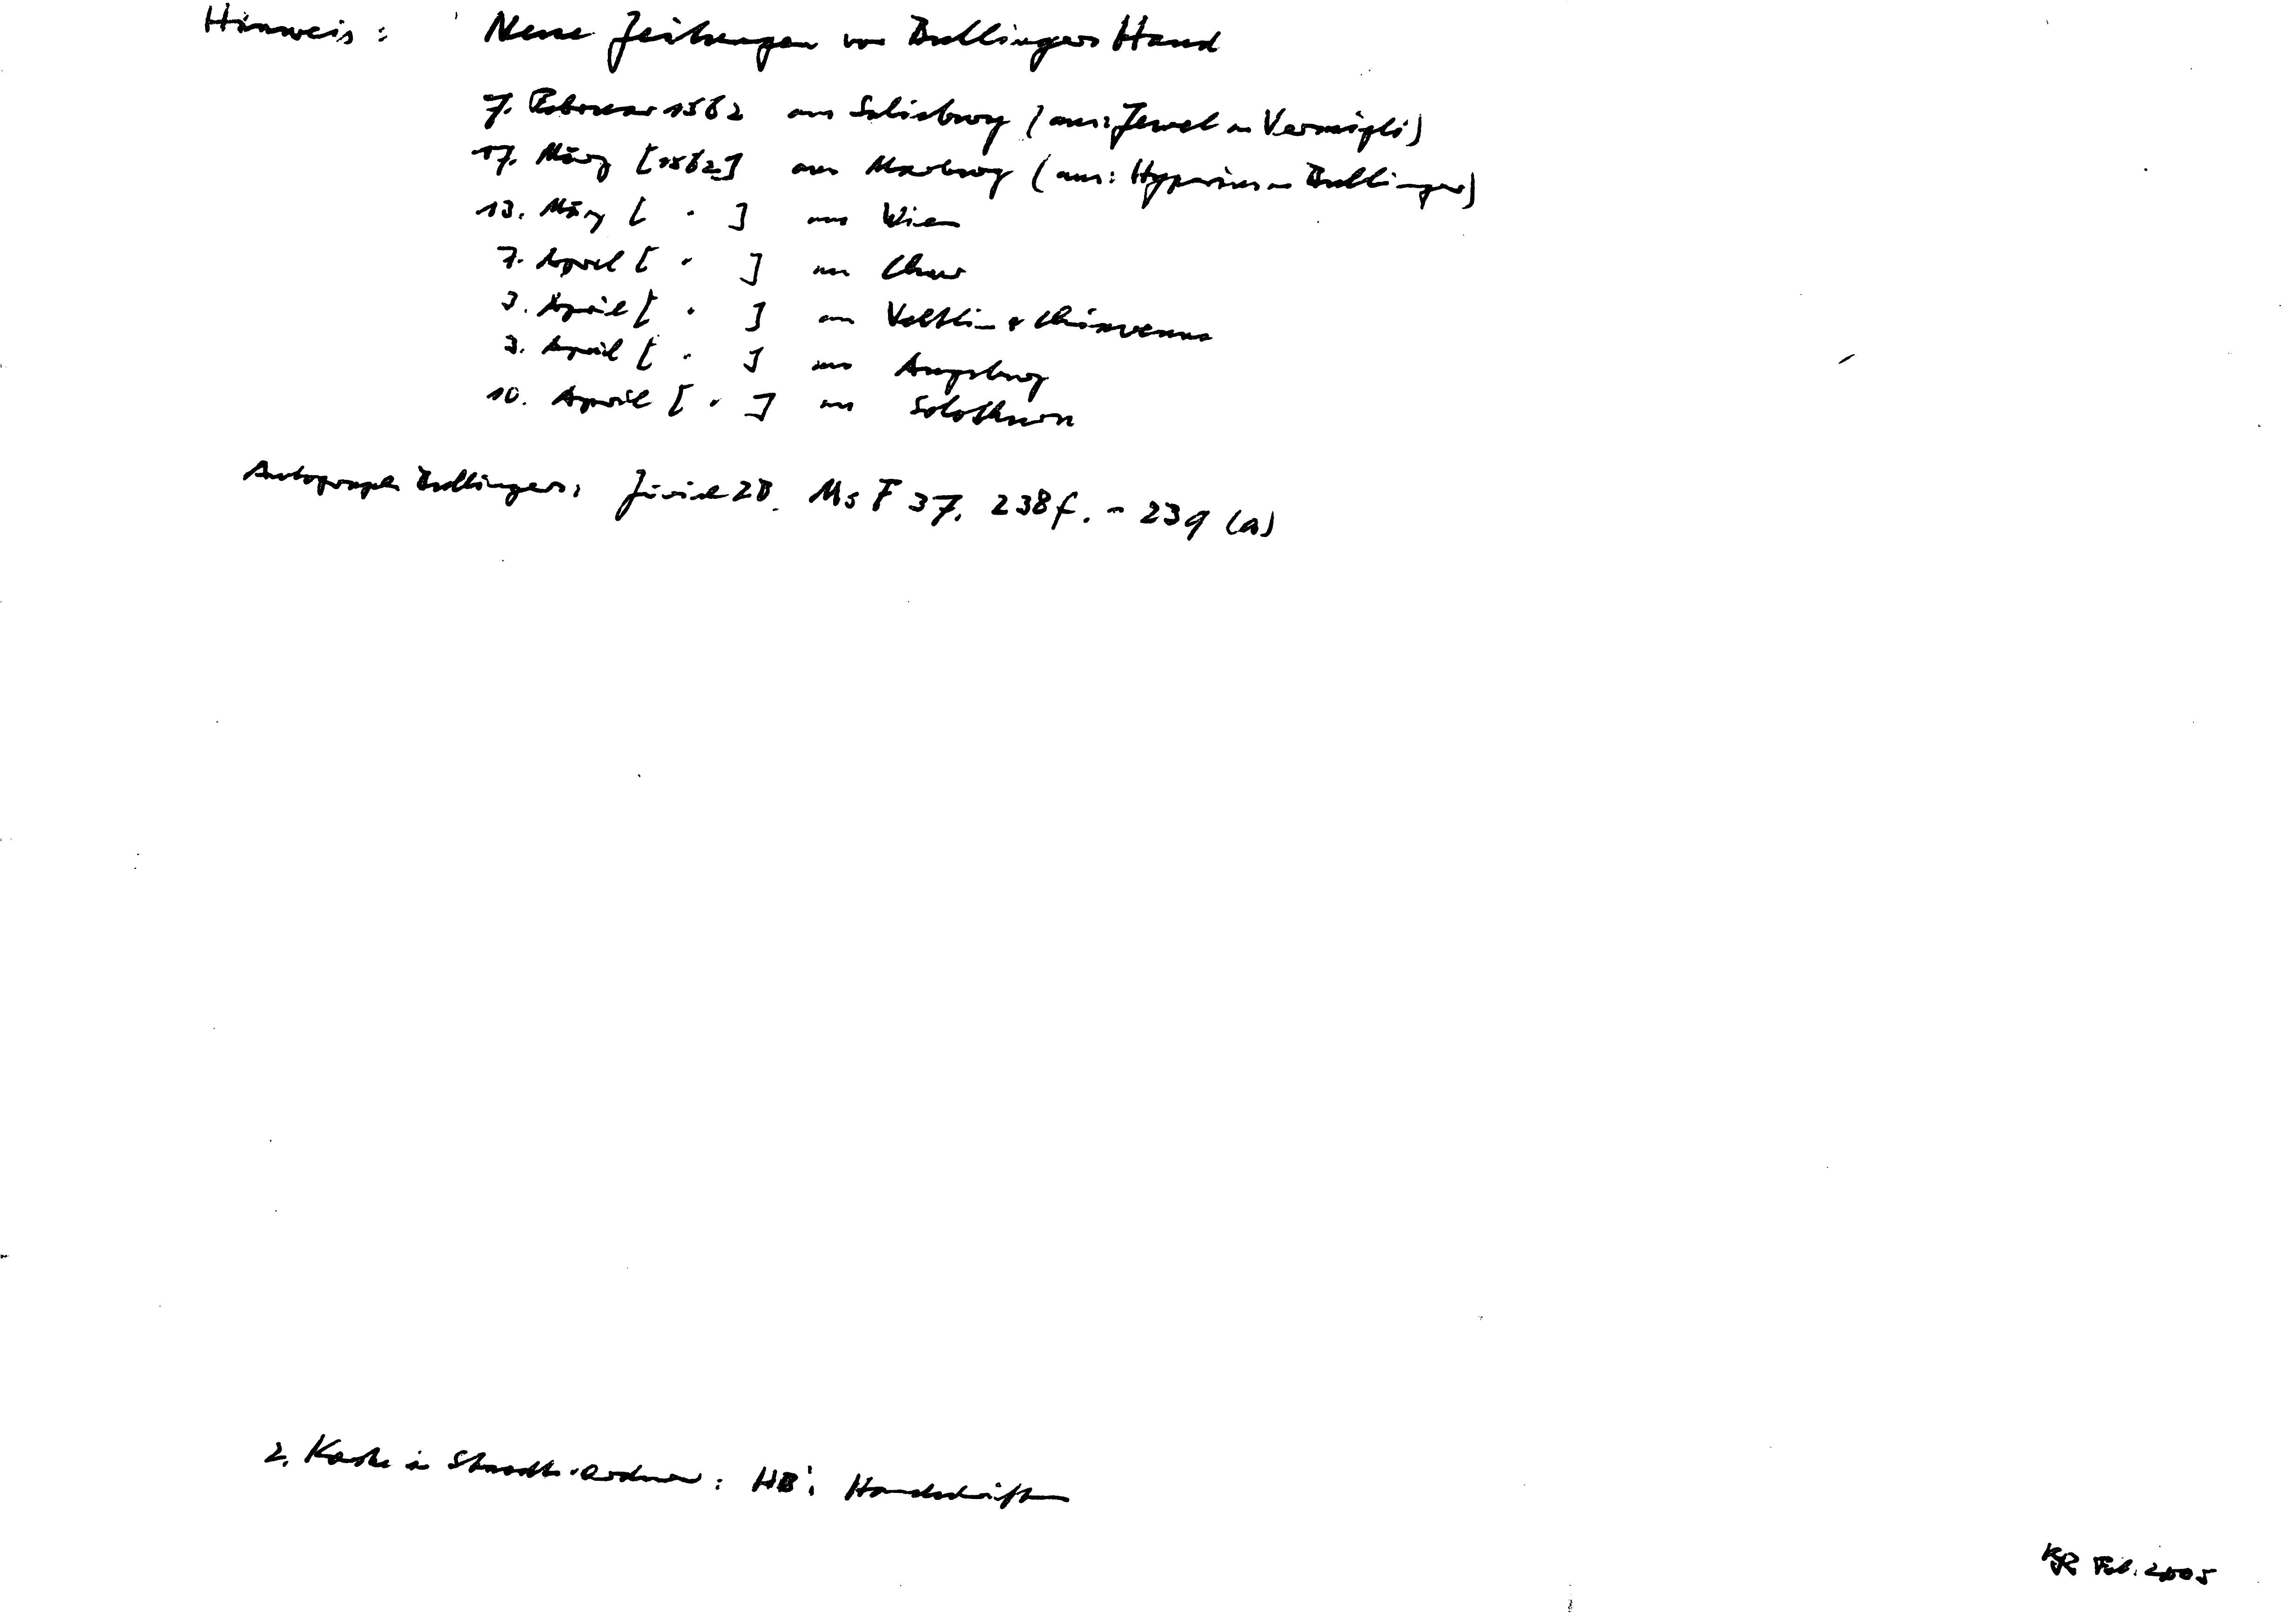 Hinweis: Neue Zeitungen von Bullingers Hand
7. Februar 1562 aus Salisbury (aus: Jewel an Vermigli)
17. März [1562] aus Marburg (aus: Hyperius an Bullinger)
13. März [ " ] aus Wien
7. April [ " ] aus Chur
3. April [ " ] aus Veltlin & Chiavenna
3. April [ " ] aus Augsburg
10. April [ " ] aus Solothurn
Autograph Bullingers: Zürich ZB. Ms F 37, 238f. - 239 (a)
2. Karte in Ordner: HB: Handschriften
KJR Feb. 2005